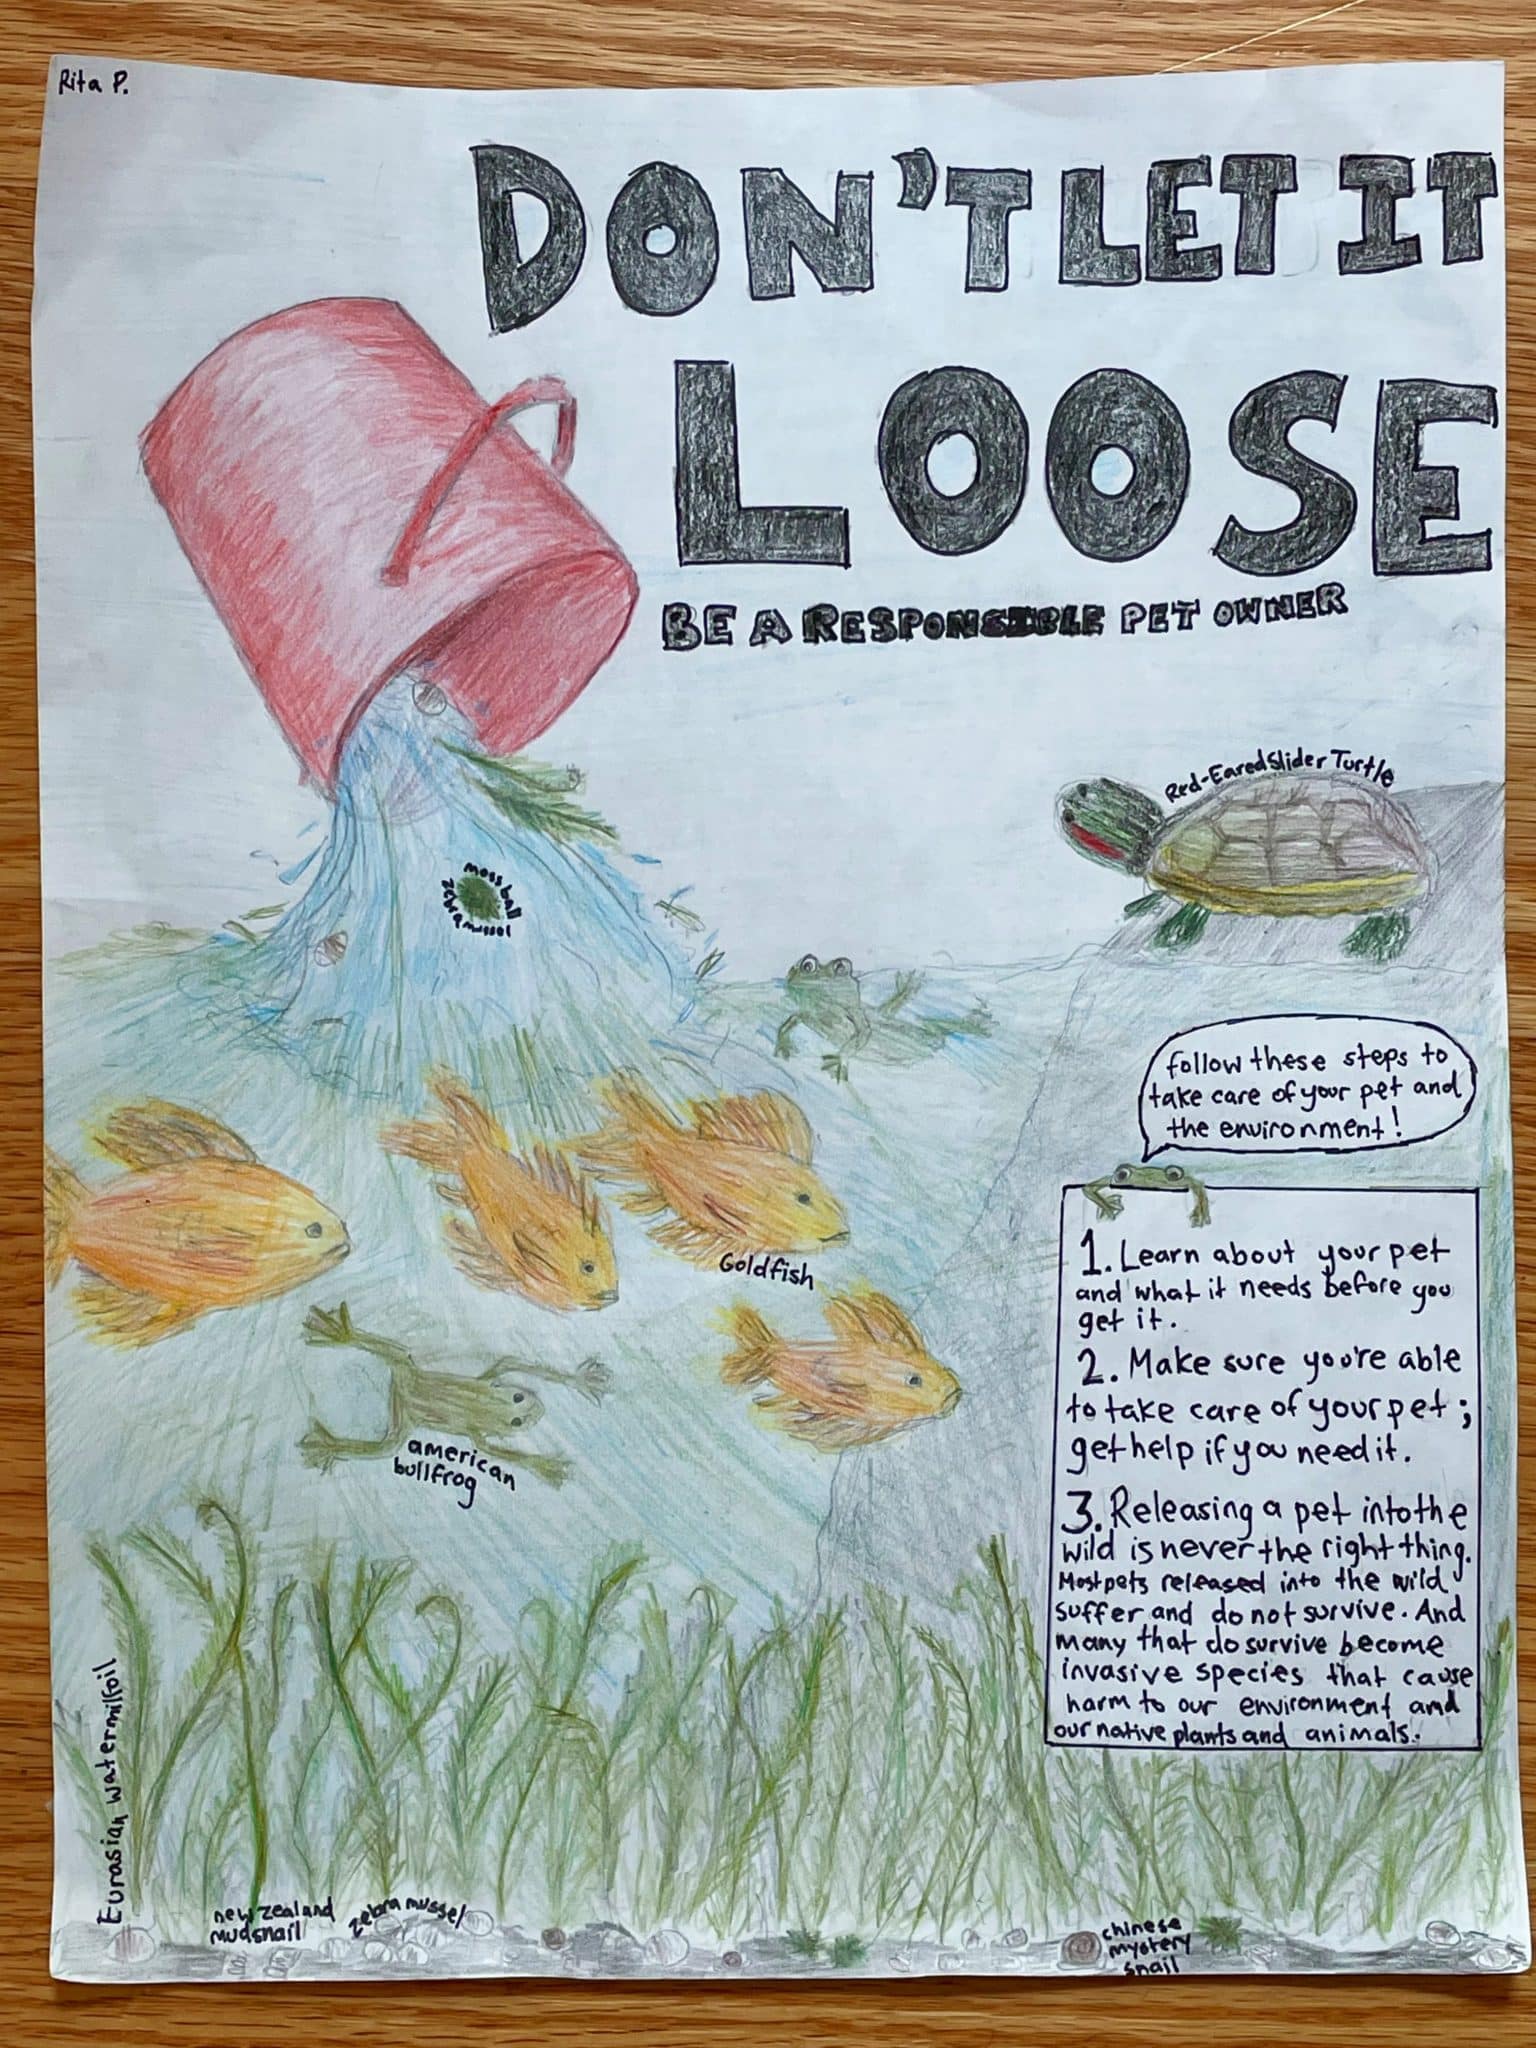 Rita P.
DON'T LET IT
LOOSE
BE A RESPONSIBLE PET OWNER
Red-Eared Slider Turtle
moss ball
zebra mussel
follow these steps to
take care of your pet and
the environment!
1. Learn about your pet
and what it needs before you
get it.
2. Make sure you're able
to take care of your pet;
get help if you need it.
3. Releasing a pet into the
wild is never the right thing.
Most pets released into the wild
suffer and do not survive. And
many that do survive become
invasive species that cause
harm to our environment and
our native plants and animals.
Goldfish
american
bullfrog
Eurasian watermilfoil
new zealand
mudsnail
zebra mussel
chinese
mystery
snail